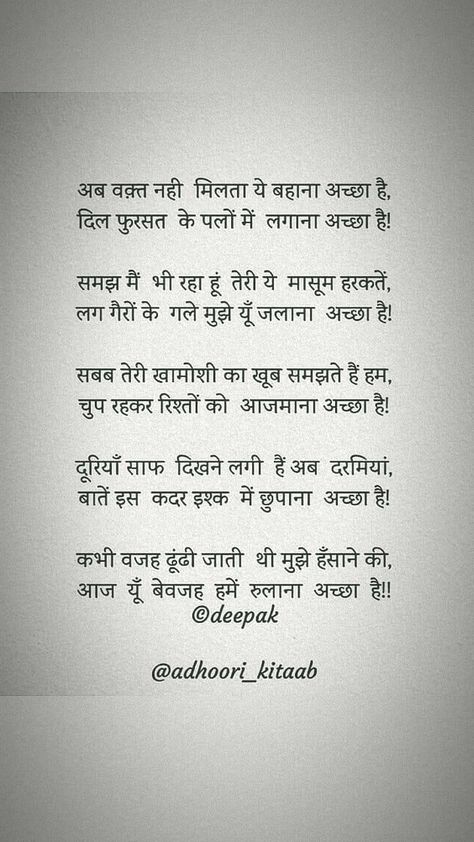 अब वक़्त नही मिलता ये बहाना अच्छा है,
दिल फुरसत के पलों में लगाना अच्छा है!
समझ मैं भी रहा हूं तेरी ये मासूम हरकतें,
लग गैरों के गले मुझे यूँ जलाना अच्छा है!
सबब तेरी खामोशी का खूब समझते हैं हम,
चुप रहकर रिश्तों को आजमाना अच्छा है!
दूरियाँ साफ दिखने लगी हैं अब दरमियां,
बातें इस कदर इश्क में छुपाना अच्छा है!
कभी वजह ढूंढी जाती थी मुझे हँसाने की,
आज यूँ बेवजह हमें रुलाना अच्छा है!!
©deepak
@adhoori_kitaab